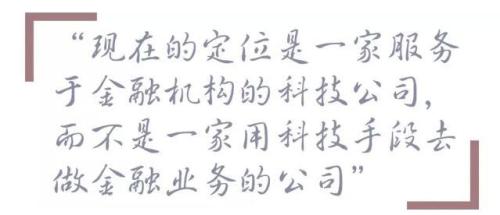 “现在的定位是一家服务
于金融机构的科技公司，
而不是一家用科技手段去
做金融业务的公司”